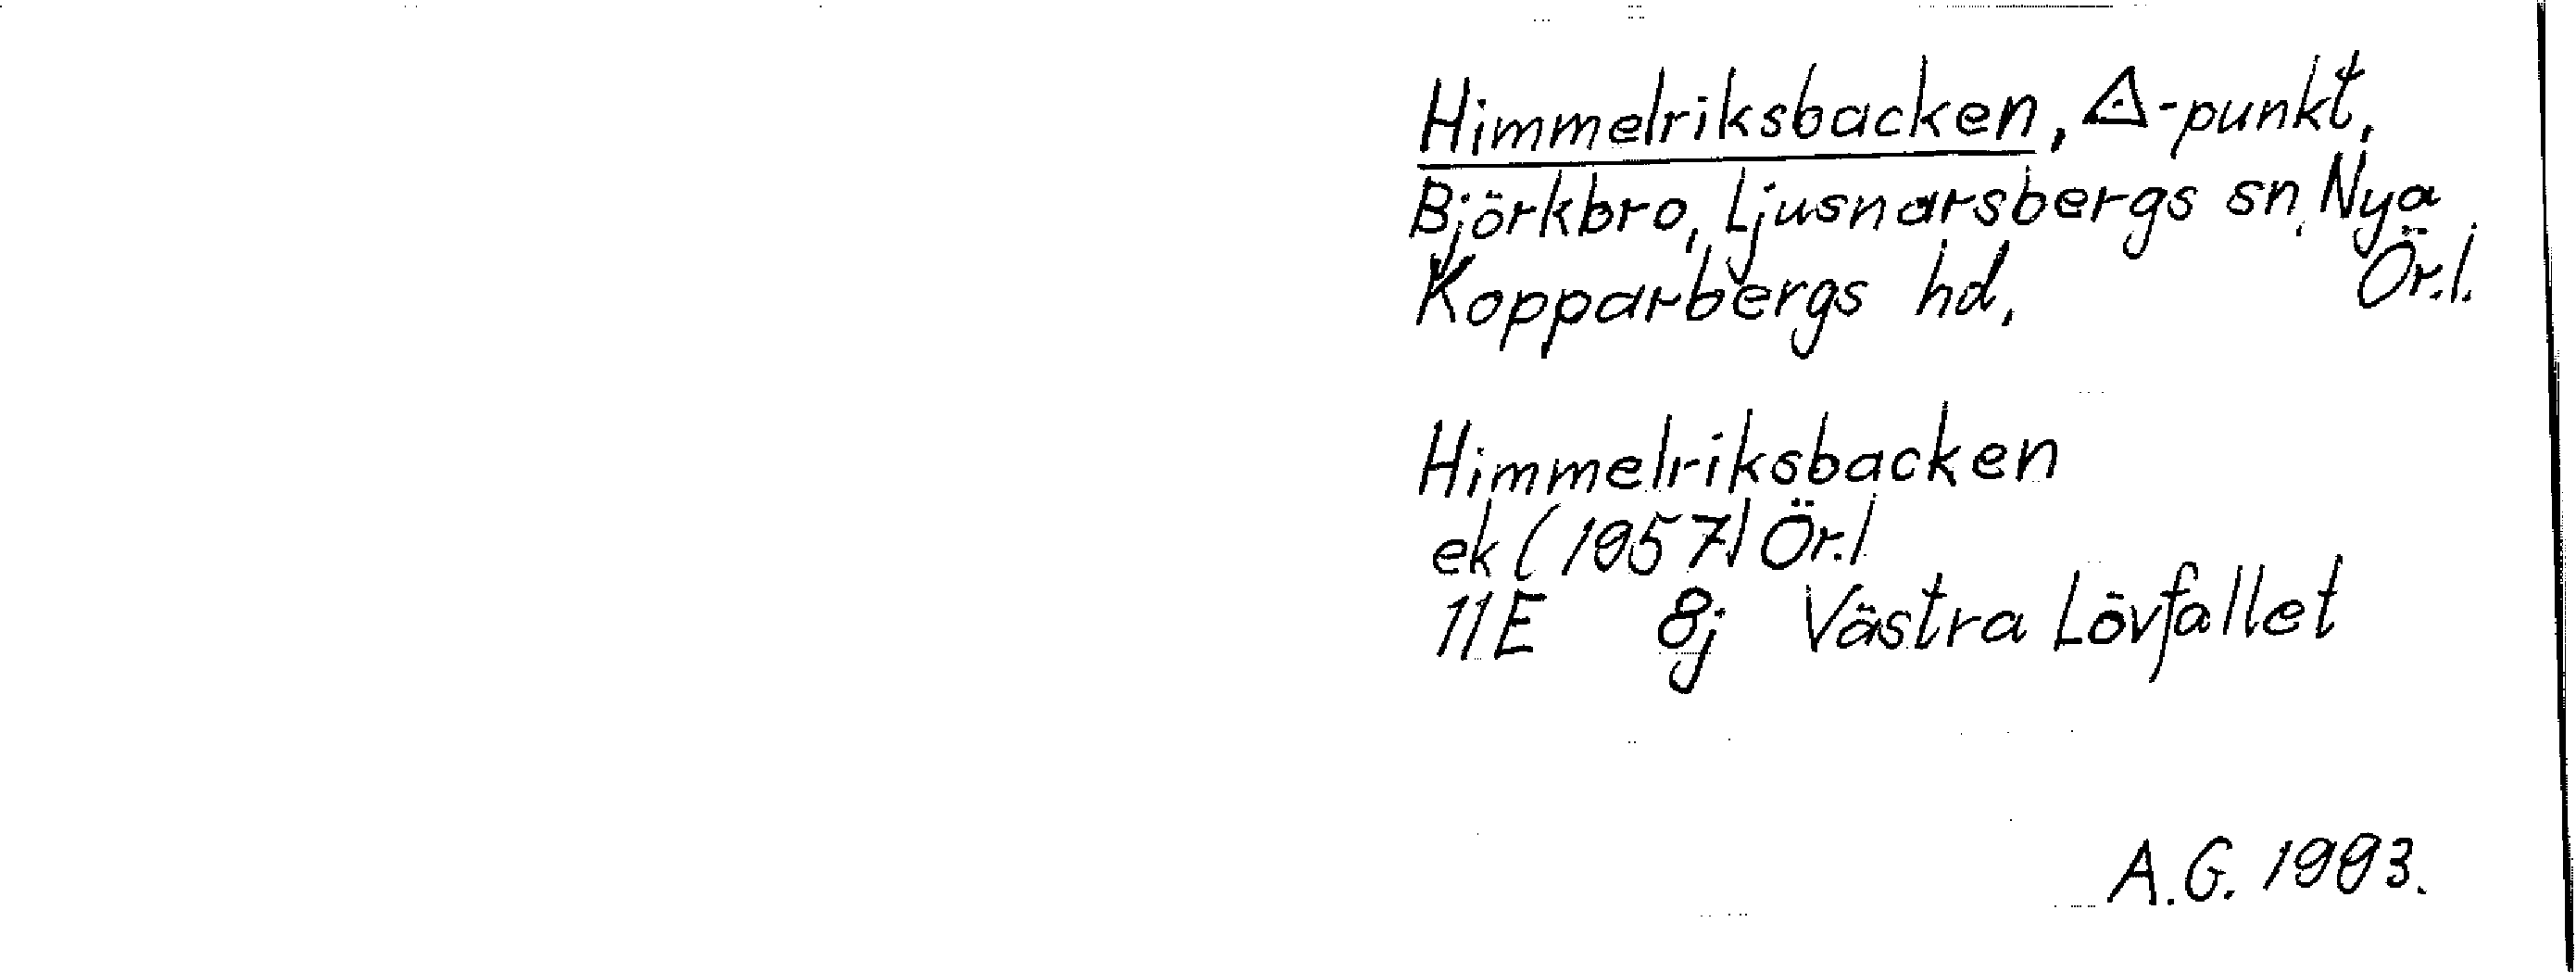 Himmelriksbacken, △-punkt,
Björkbro, Ljusnarsbergs sn, Nya
Kopparbergs hd, Ör.l.
Himmelriksbacken
ek (1957) Ör.l
11E 8j Västra Lövfallet
A.G. 1993.